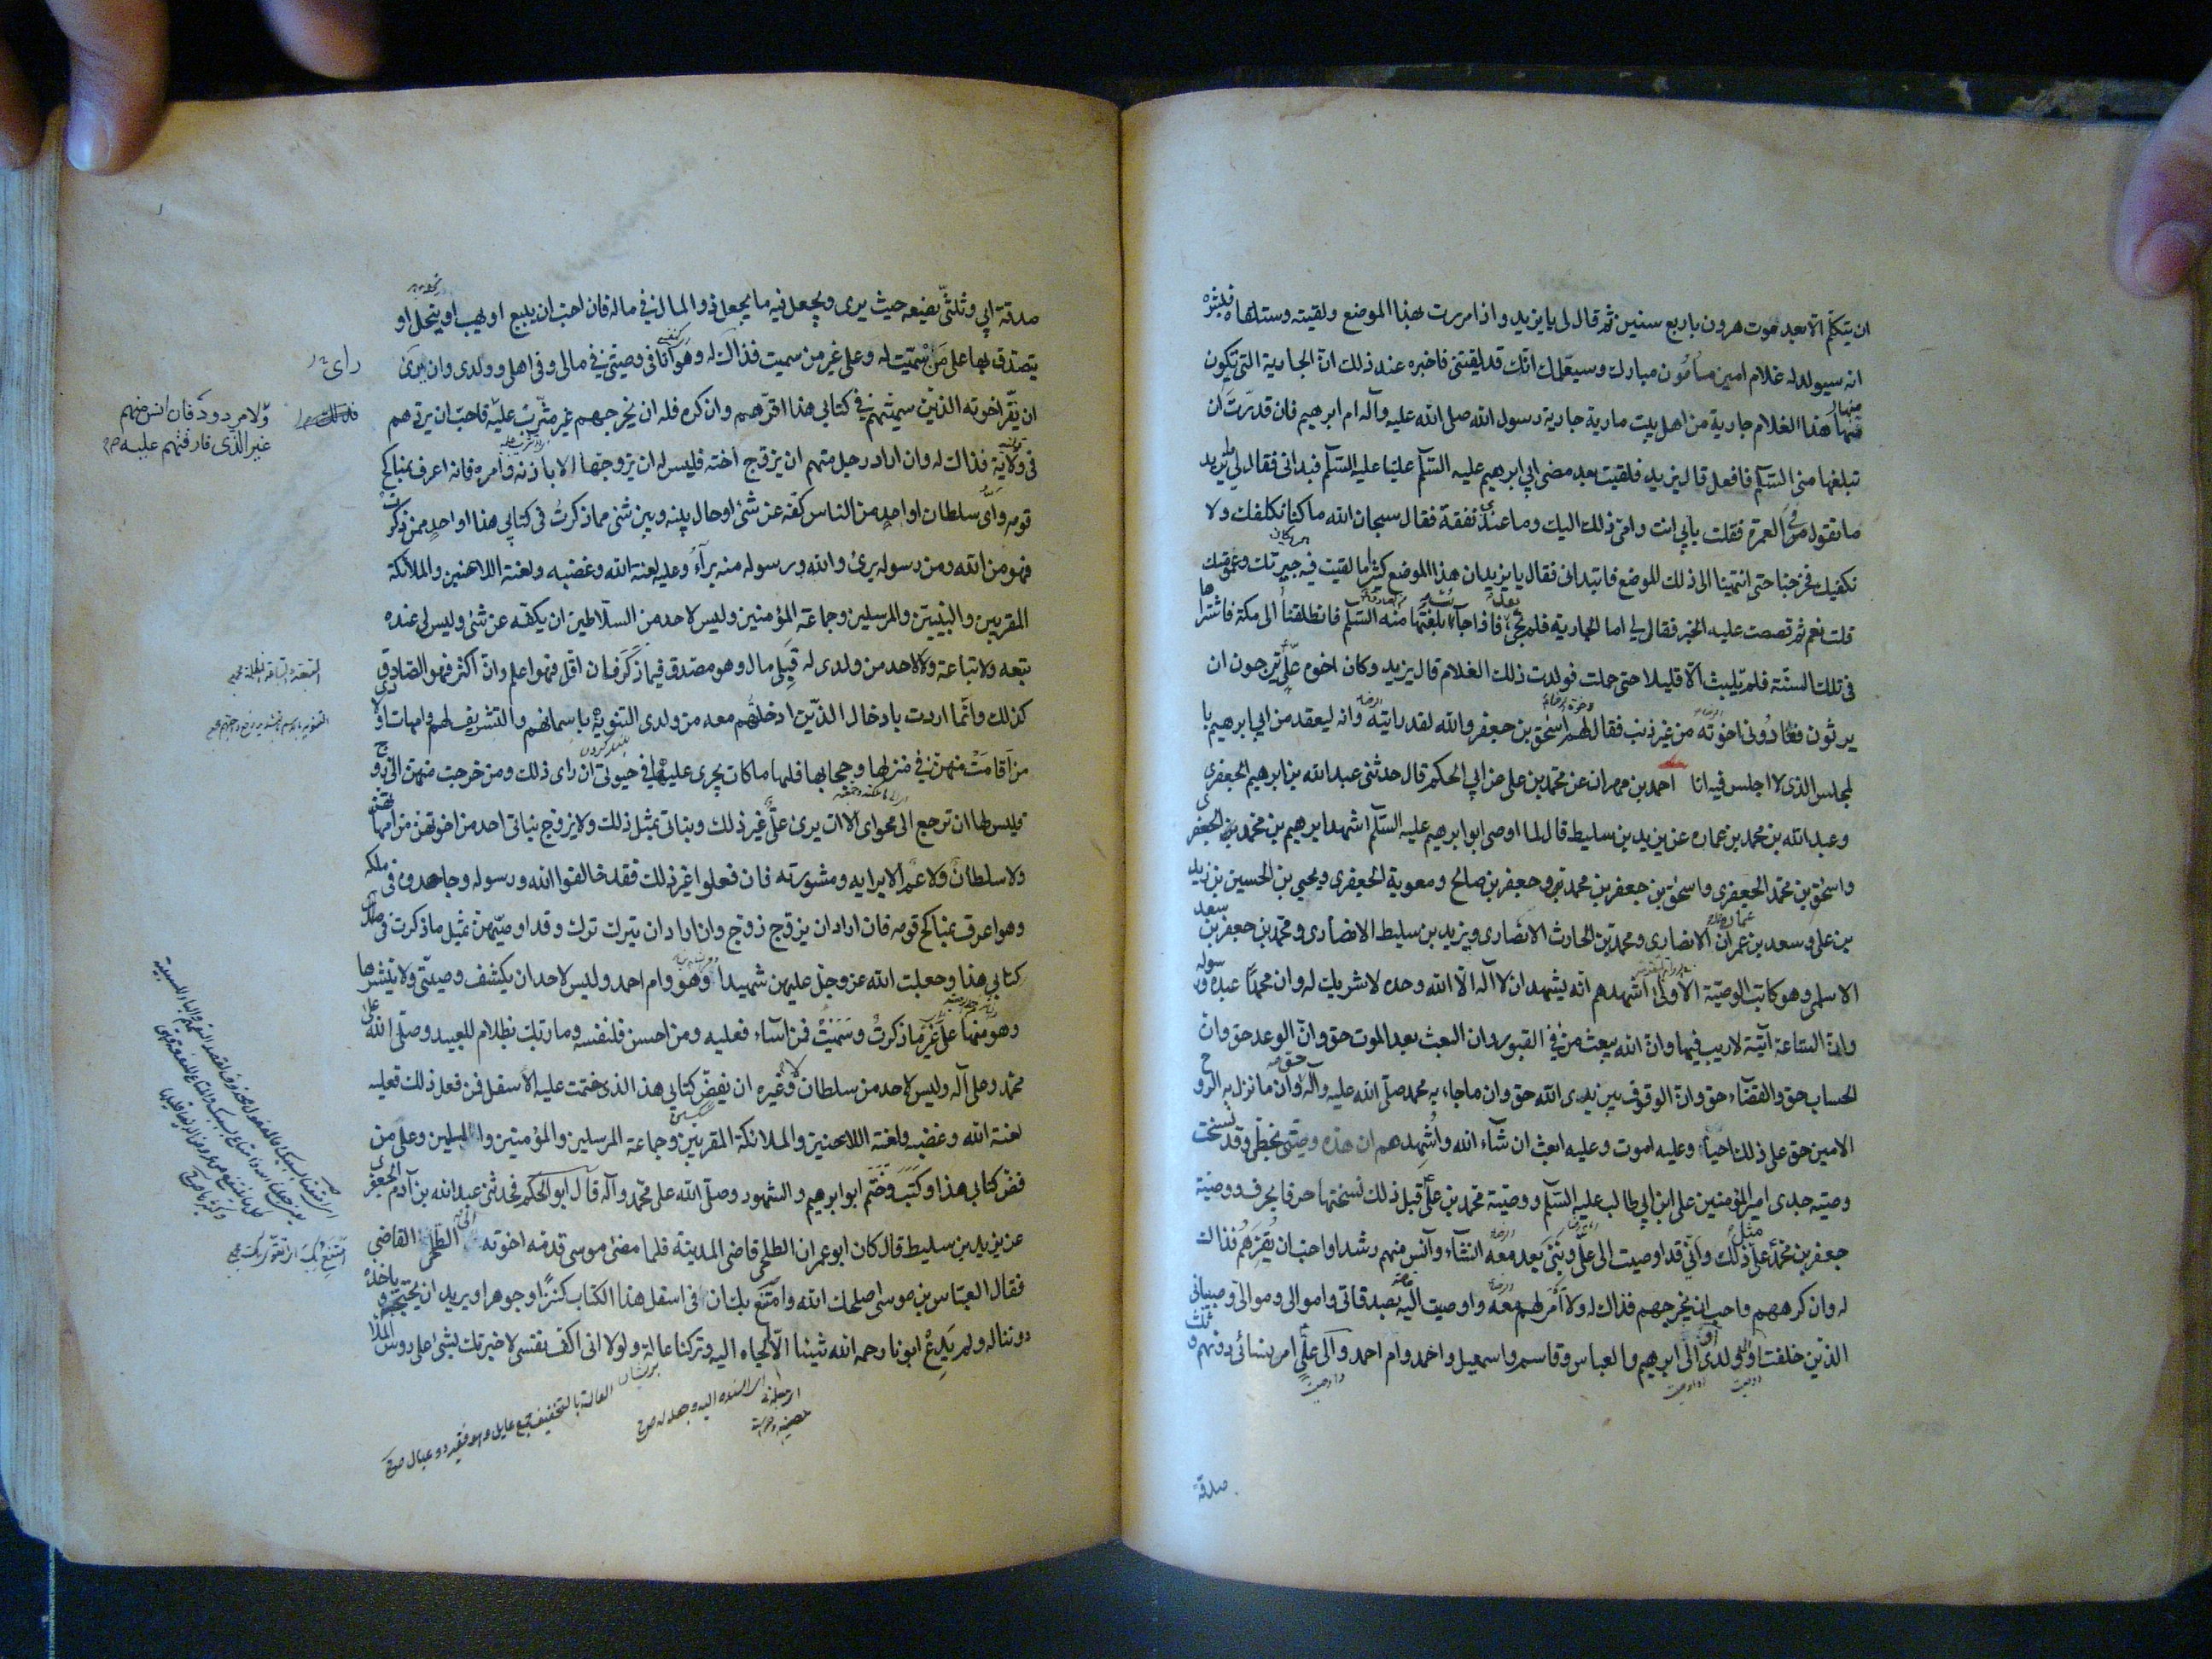 ان يتكلم الا بعد موت هرون باربع سنين ثم قال لى يا يزيد واذا مررت بهذا الموضع ولقيته وستلقاه فبشره
انه سيولد له غلام امين مأمون مبارك وسيعلمك انك قد لقيتنى فاخبره عند ذلك ان الجارية التى يكون
منها هذا الغلام جارية من اهل بيت مارية جارية رسول الله صلى الله عليه وآله ام ابرهيم فان قدرت ان
تبلغها منى السلم فافعل قال يزيد فلقيت بعد مضى ابى ابرهيم عليه السلم عليا عليه السلم فبدانى فقال لى يا يزيد
ما تقول فى العمرة فقلت بابى انت وامى ذلك اليك وما عندى نفقة فقال سبحان الله ما كنا نكلفك ولا
نكفيك فخرجنا حتى انتهينا الى ذلك الموضع فابتدانى فقال يا يزيد ان هذا الموضع كثيرا ما لقيت فيه جيرتك وعمومتك
قلت نعم ثم قصصت عليه الخبر فقال لى اما الجارية فلم تجئ بعد فاذا جاءت بلغتها منه السلم فانطلقنا الى مكة فاشتراها
فى تلك السنة فلم يلبث الا قليلا حتى حملت فولدت ذلك الغلام قال يزيد وكان اخوة على يرجون ان
يرثوه فعادونى اخوته من غير ذنب فقال لهم اسحق بن جعفر والله لقد رايته وانه ليقعد من ابى ابرهيم با
لمجلس الذى لا اجلس فيه انا احمد بن مهران عن محمد بن على عن ابى الحكم قال حدثنى عبد الله بن ابرهيم الجعفرى
وعبد الله بن محمد بن عماره عن يزيد بن سليط قال لما اوصى ابو ابرهيم عليه السلم اشهد ابرهيم بن محمد الجعفرى
واسحق بن محمد الجعفرى واسحق بن جعفر بن محمد وجعفر بن صالح ومعوية الجعفرى ويحيى بن الحسين بن زيد
بن على وسعد بن عمران الانصارى ومحمد بن الحارث الانصارى ويزيد بن سليط الانصارى ومحمد بن جعفر بن سعد
الاسلمى وهو كاتب الوصية الاولى اشهدهم انه يشهد ان لا اله الا الله وحده لا شريك له وان محمدا عبده ورسوله
وان الساعة آتية لا ريب فيها وان الله يبعث من فى القبور وان البعث بعد الموت حق وان الوعد حق وان
الحساب حق والقضاء حق وان الوقوف بين يدى الله حق وان ما جاء به محمد صلى الله عليه وآله حق وان ما نزل به الروح
الامين حق على ذلك احيا وعليه اموت وعليه ابعث ان شاء الله واشهدهم ان هذه وصيتى بخطى وقد نسخت
وصية جدى امير المؤمنين على ابن ابى طالب عليه السلم ووصية محمد بن على قبل ذلك نسختها حرفا بحرف ووصية
جعفر بن محمد على مثل ذلك وانى قد اوصيت الى على وبنى بعد معه ان شاء وآنس منهم رشدا واحب ان يقرهم فذاك
له وان كرههم واحب ان يخرجهم فذاك له ولا امر لهم معه واوصيت اليه بصدقاتى واموالى وموالى وصبيانى
الذين خلفت وولدى الى ابرهيم والعباس وقاسم واسمعيل واحمد وام احمد والى على امر نسائى دونهم وثلث
صدقة
صدقة ابى وثلثى يضعه حيث يرى ويجعل فيه ما يجعل ذو المال فى ماله فان احب ان يبيع او يهب او ينحل او
يتصدق بها على من سميت له وعلى غير من سميت فذاك له وهو انا فى وصيتى فى مالى وفى اهلى وولدى وان يرى
ان يقر اخوته الذين سميتهم فى كتابى هذا اقرهم وان كره فله ان يخرجهم غير مثرب عليه فاحب ان يردهم
فى ولاية فذاك له وان اراد رجل منهم ان يزوج اخته فليس له ان يزوجها الا باذنه وامره فانه اعرف بمناكح
قومه واى سلطان او احد من الناس كفه عن شئ او حال بينه وبين شئ مما ذكرت فى كتابى هذا او احد ممن ذكرت
فهو من الله ومن رسوله برئ والله ورسوله منه برآء وعليه لعنة الله وغضبه ولعنة اللاعنين والملائكة
المقربين والنبيين والمرسلين وجماعة المؤمنين وليس لاحد من السلاطين ان يكفه عن شئ وليس لى عنده
تبعه ولا تباعة ولا لاحد من ولدى له قبلى مال وهو مصدق فيما ذكر فان اقل فهو اعلم وان اكثر فهو الصادق
كذلك وانما اردت بادخال الذين ادخلتهم معه من ولدى التنويه باسمائهم والتشريف لهم وامهات اولادى
من اقامت منهن فى منزلها وحجابها فلها ما كان يجرى عليها فى حيوتى ان راى ذلك ومن خرجت منهن الى زوج
فليس لها ان ترجع الى محواى الا ان يرى على غير ذلك وبناتى بمثل ذلك ولا يزوج بناتى احد من اخوتهن من امهاتهن
ولا سلطان ولا عم الا برايه ومشورته فان فعلوا غير ذلك فقد خالفوا الله ورسوله وجاهدوه فى ملكه
وهو اعرف بمناكح قومه فان اراد ان يزوج زوج وان اراد ان يترك ترك وقد اوصيتهن بمثل ما ذكرت فى
كتابى هذا وجعلت الله عز وجل عليهن شهيدا وهو وام احمد وليس لاحد ان يكشف وصيتى ولا ينشرها
وهو منها على غير ما ذكرت وسميت فمن اساء فعليه ومن احسن فلنفسه وما ربك بظلام للعبيد وصلى الله على
محمد وعلى آله وليس لاحد من سلطان ولا غيره ان يفض كتابى هذا الذى ختمت عليه الاسفل فمن فعل ذلك فعليه
لعنة الله وغضبه ولعنة اللاعنين والملائكة المقربين وجماعة المرسلين والمؤمنين والمسلمين وعلى من
فض كتابى هذا وكتب وختم ابو ابرهيم والشهود وصلى الله على محمد وآله قال ابو الحكم فحدثنى عبد الله بن آدم الجعفرى
عن يزيد بن سليط قال كان ابو عمران الطلحى قاضى المدينة فلما مضى موسى قدمه اخوته الى الطلحى القاضى
فقال العباس بن موسى اصلحك الله وامتع بك ان فى اسفل هذا الكتاب كنزا وجوهرا ويريد ان يحتجبه وياخذه
دوننا له ولم يدع ابونا رحمه الله شيئا الا الجاه اليه وتركنا عالة ولولا انى اكف نفسى لاخبرتك بشئ على رؤس الملأ
ولا مردود فان انس منهم
غير الذى فارقتهم عليه
العالة بالتخفيف جمع عايل وهو فقير ذو عيال